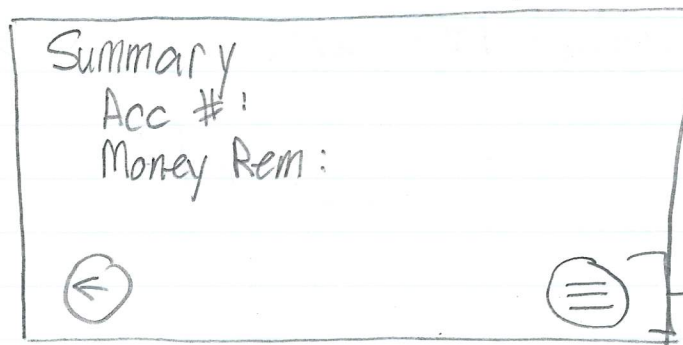 Summary
Acc #:
Money Rem: